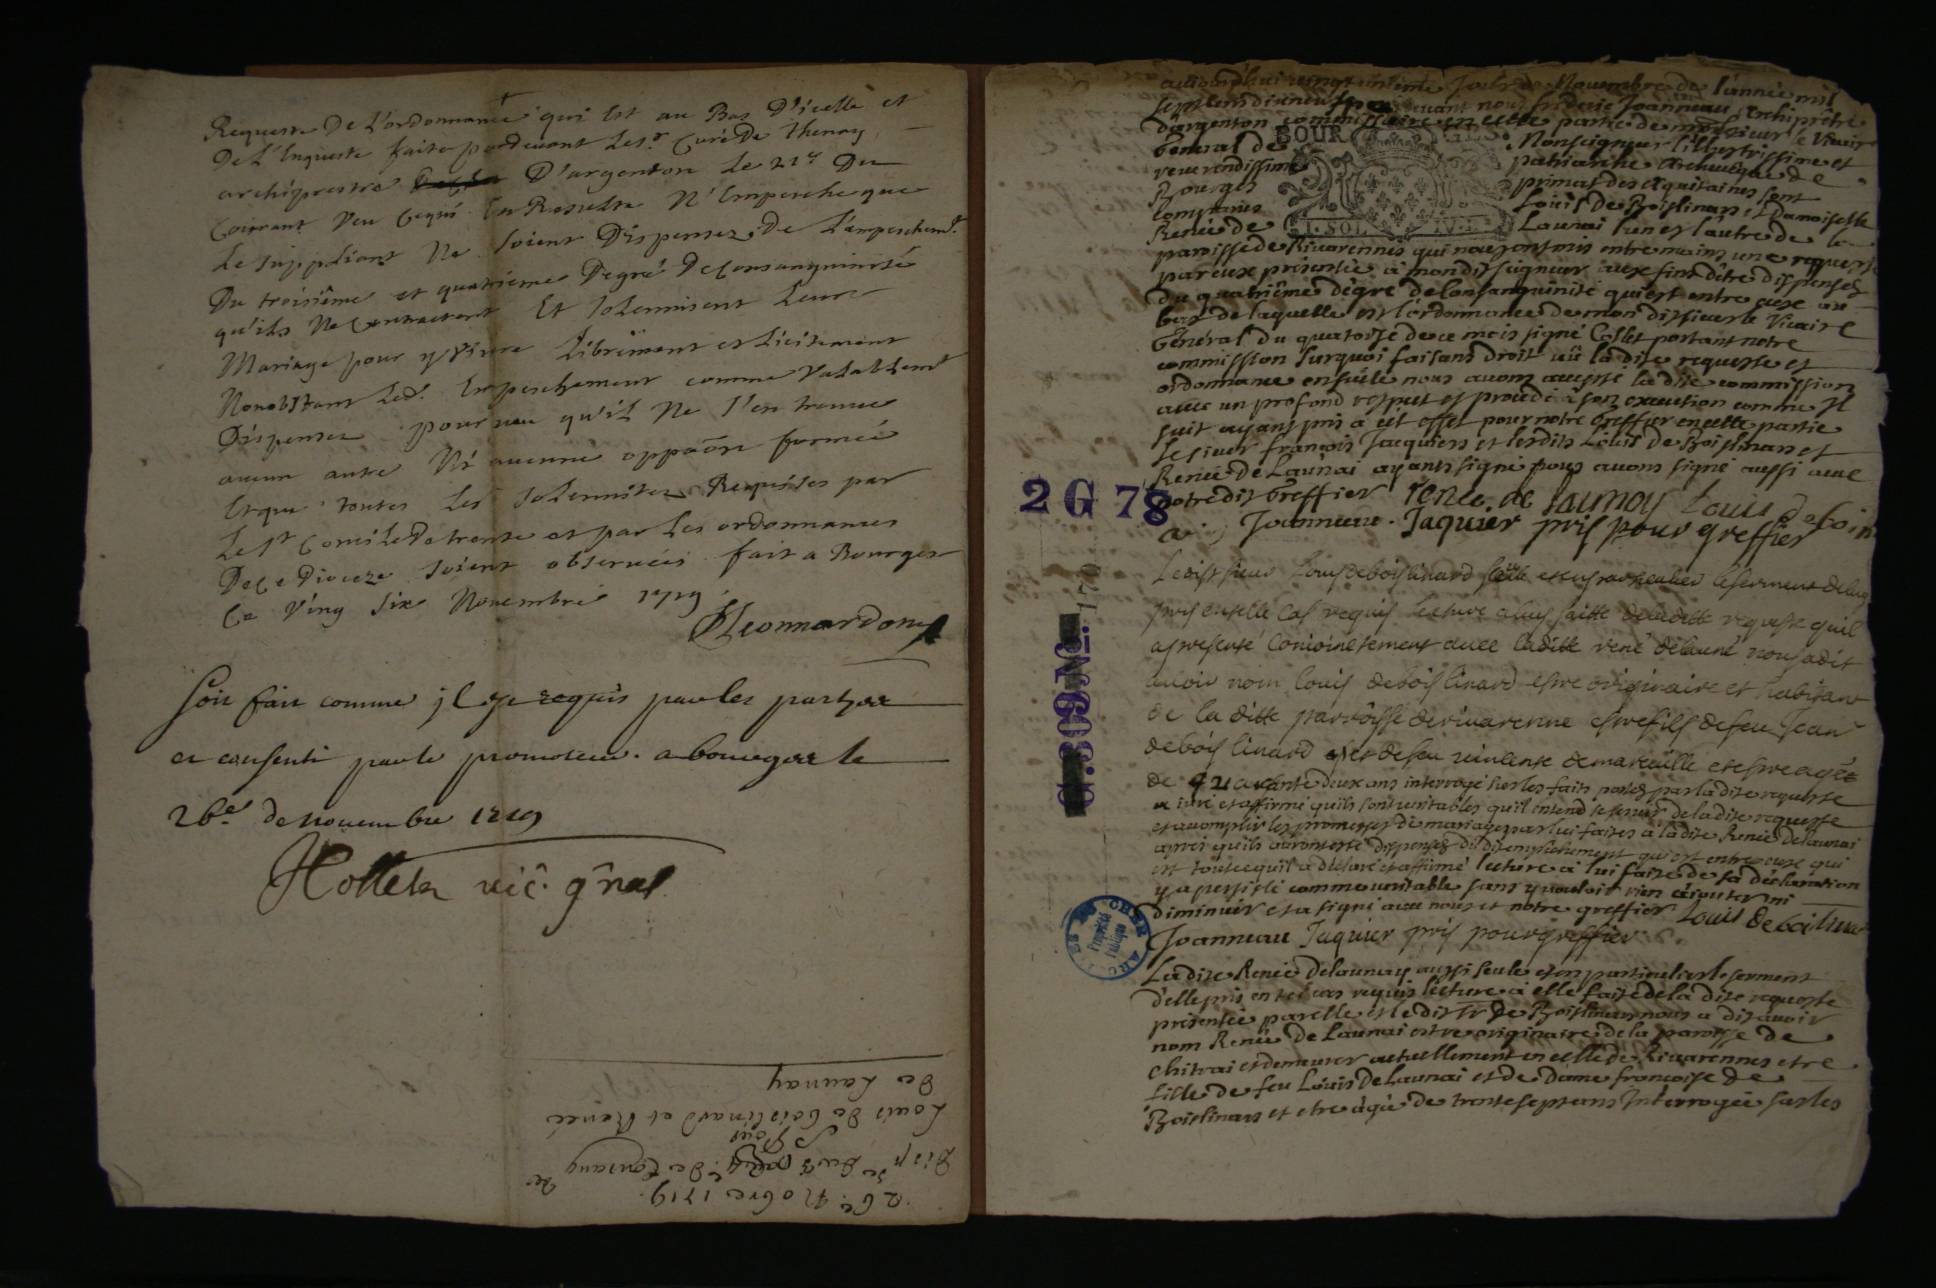 Requeste De L'ordonnance qui Est au Bas D'icelle et
De L'Enqueste faite pardevant Le Sr. Curé De Thenay
archiprestre D'argenton Le 21e Du
Courant Veu Cequi En Resulte N'Empeschcque
Le Supplians Ne Soient Dispensez De L'ampeschemt.
Du troisiême et quatrieme Degré De Consanguinité
qu'ils Ne Contractent Et Solemnisent Leur
Mariage pour y Vivre Librement et Licitement
Nonobstant Led. Empeschement comme Valablemt
Dispensez pourveu qu'il Ne S'en trouve
aucun autre Ni aucune oppãõn formée
Et que toutes Les Solemnitez Requises par
Le St Concile De trente et par Les ordonnances
De Ce Dioceze Soient observées fait a Bourges
Ce Ving Six Novembre 1719.
Leonnardon
Soit fait comme il est requis par les parties
et consenti par le promoteur. a bourges le
26e de novembre 1719
Collet vic. g'nal
26e Nobre 1719.
Disp. du 3e au 4e Degré de Consang de
Pour
Louis de Boislinard et Renée
de Launay
aujourd'hui vingt unieme Jour de Novembre de l'année mil
sept cens dixneuf par devant nous frideric Joanneau Archiprêtre
d'argenton commissaire en cette partie de monsieur le Vicaire
General de Monseigneur l'illustrissime et
reverendissime patriarche Archevêque de
Bourges primat des Aquitaines sont
comparus Louis de Boislinars et Damoiselle
Renée de Launai l'un et l'autre de la
paroisse de Rivarennes qui nous ont mis entre mains une requeste
par eux présentée à mondit seigneur aux fins d'être dispensez
du quatriême dégré de Consanguinité qui est entre eux au
bas de laquelle est l'ordonnance de mon dit sieur le Vicaire
Général du quatorze de ce mois signé Collet portant notre
commission surquoi faisant droit vû la dite requeste et
ordonnance ensuite nous avons accepté la dite commission
avec un profond respect et procedé à son execution comme Il
suit ayant pris à cet effet pour notre Greffier en cette partie
le sieur françois Jacquiers et lesdits Louis de Boislinars et
Renée de Launai ayants signé nous avons signé aussi avec
notre dit Greffier renee de launay Louis de boislin
Joanneau. Jaquier pris pour greffier
2 G 78
Ledit sieur Louis de boislinard seul et en particulier le serment de luy
pris en telle cas requis lecture a luy faitte de laditte requeste quil
a presenté conioinctement avec laditte rené delauné nous a dit
avoir nom louis de bois linard estre originaire et habitant
de la ditte parroisse de rivarenne estre fils de feu Jean
de bois linard et de feu vinlente de mareuille et estre agée
de quarante deux ans interrogé sur les faits posez par la dite requeste
a juré et affirmé quils sont veritables qu'il entend se servir de la dite requeste
et accomplir les promesses de mariage par lui faites à la dite Renée delaunai
apres quils auront esté dispensez du dit empêchement qui est entre eux qui
est tout ce qu'il a déclaré et affirmé lecture à lui faite de sa déclaration
y a persisté comme veritable sans y vouloir rien ajouter ni
diminuer et a signé avec nous et notre greffier Louis de boislinard
Joanneau Jaquier pris pour greffier
La dite Renée Delaunay aussi seule et en particulier le serment
d'elle pris en tel cas requis lecture à elle faite de la dite requeste
présentée par elle et le dit Sr De Boislinars nous a dit avoir
nom Renée De Launai estre originaire de la paroisse de
chitrai et demeurer actuellement en celle de Rivarennes etre
fille de feu Louis De Launai et de Dame françoise de
Boislinars et etre âgée de trente sept ans Interrogée sur les